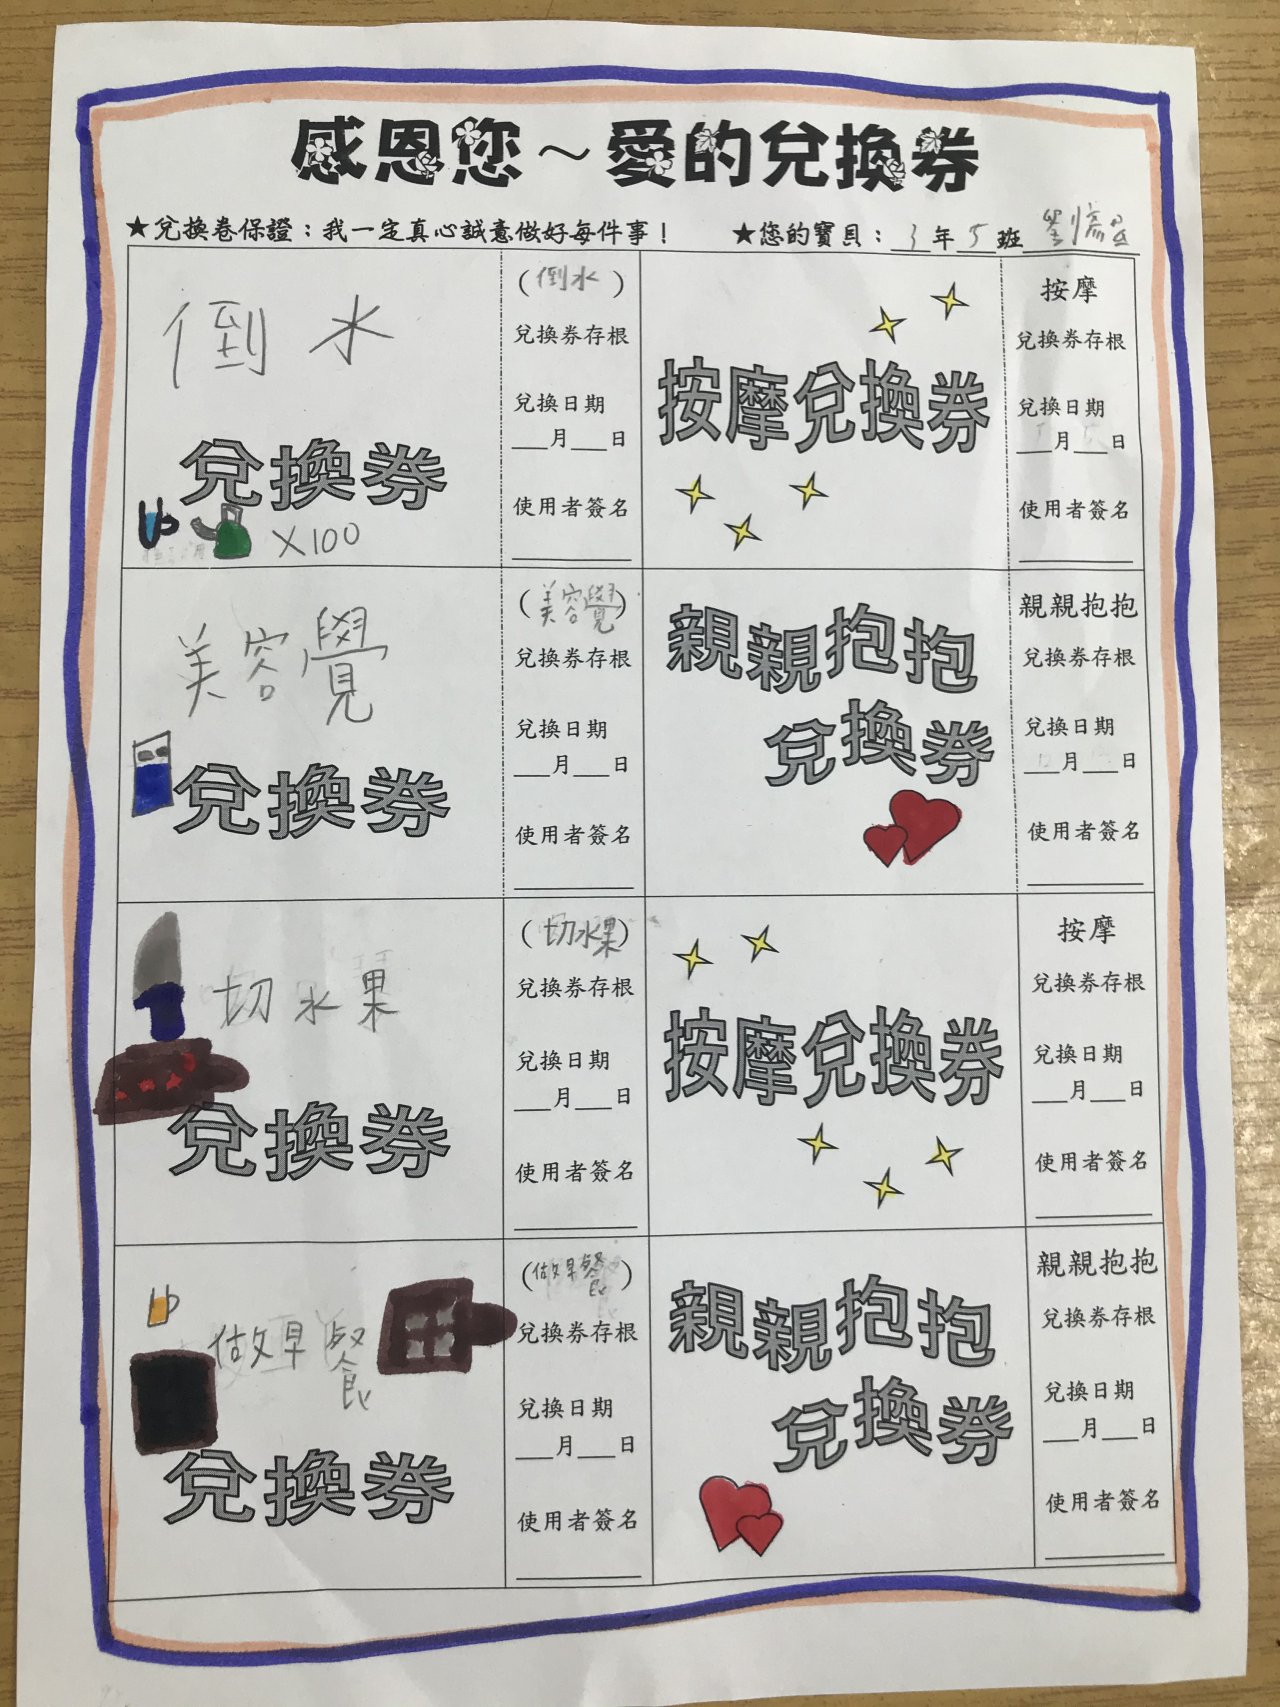 感恩您～愛的兌換券
★兌換卷保證：我一定真心誠意做好每件事！ ★您的寶貝：3年5班
倒水
兌換券
X100
(倒水)
兌換券存根
兌換日期
___月___日
使用者簽名
按摩兌換券
按摩
兌換券存根
兌換日期
___月___日
使用者簽名
美容覺
兌換券
(美容覺)
兌換券存根
兌換日期
___月___日
使用者簽名
親親抱抱
兌換券
親親抱抱
兌換券存根
兌換日期
___月___日
使用者簽名
切水果
兌換券
(切水果)
兌換券存根
兌換日期
___月___日
使用者簽名
按摩兌換券
按摩
兌換券存根
兌換日期
___月___日
使用者簽名
做早餐
兌換券
(做早餐)
兌換券存根
兌換日期
___月___日
使用者簽名
親親抱抱
兌換券
親親抱抱
兌換券存根
兌換日期
___月___日
使用者簽名